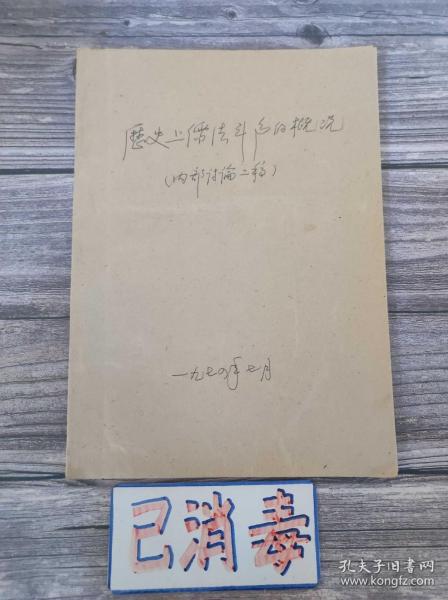 歷史上儒法斗争的概况
（内部讨论二稿）
一九七四年七月
已消毒
孔夫子旧书网
www.kongfz.com